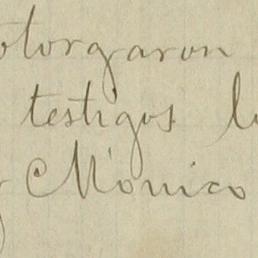 otorgaron
testigos
Mónico